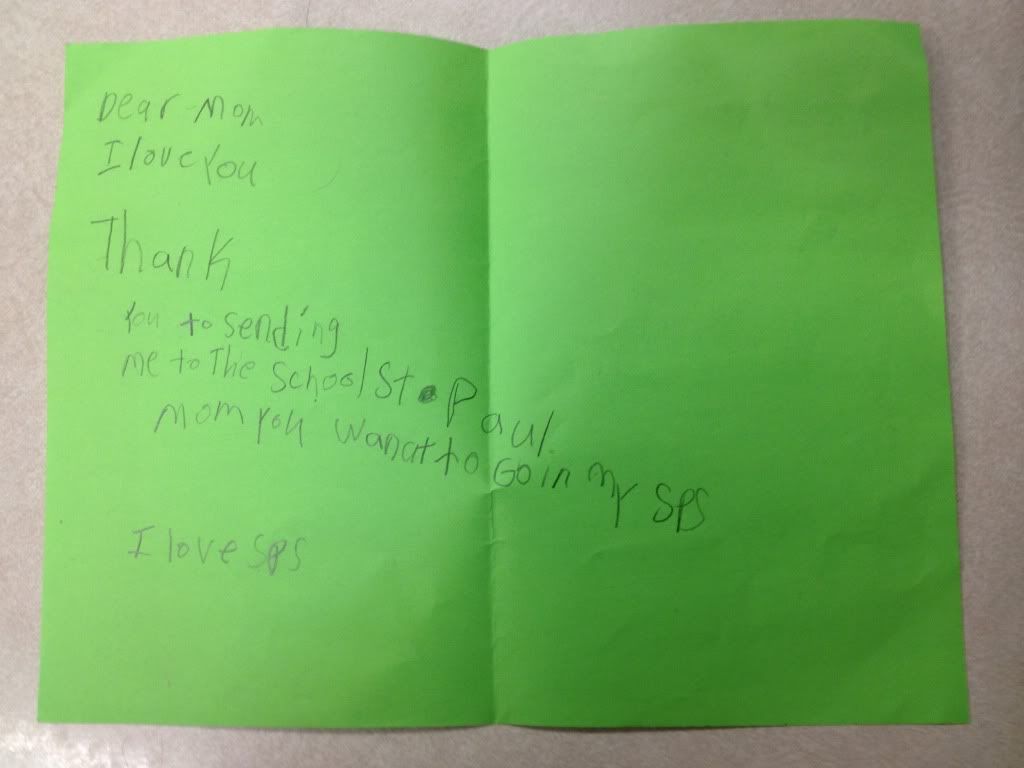 Dear Mom
I love You
Thank
You to sending
me to The School St. Paul.
Mom you wanat to Go in my SPS
I love SPS